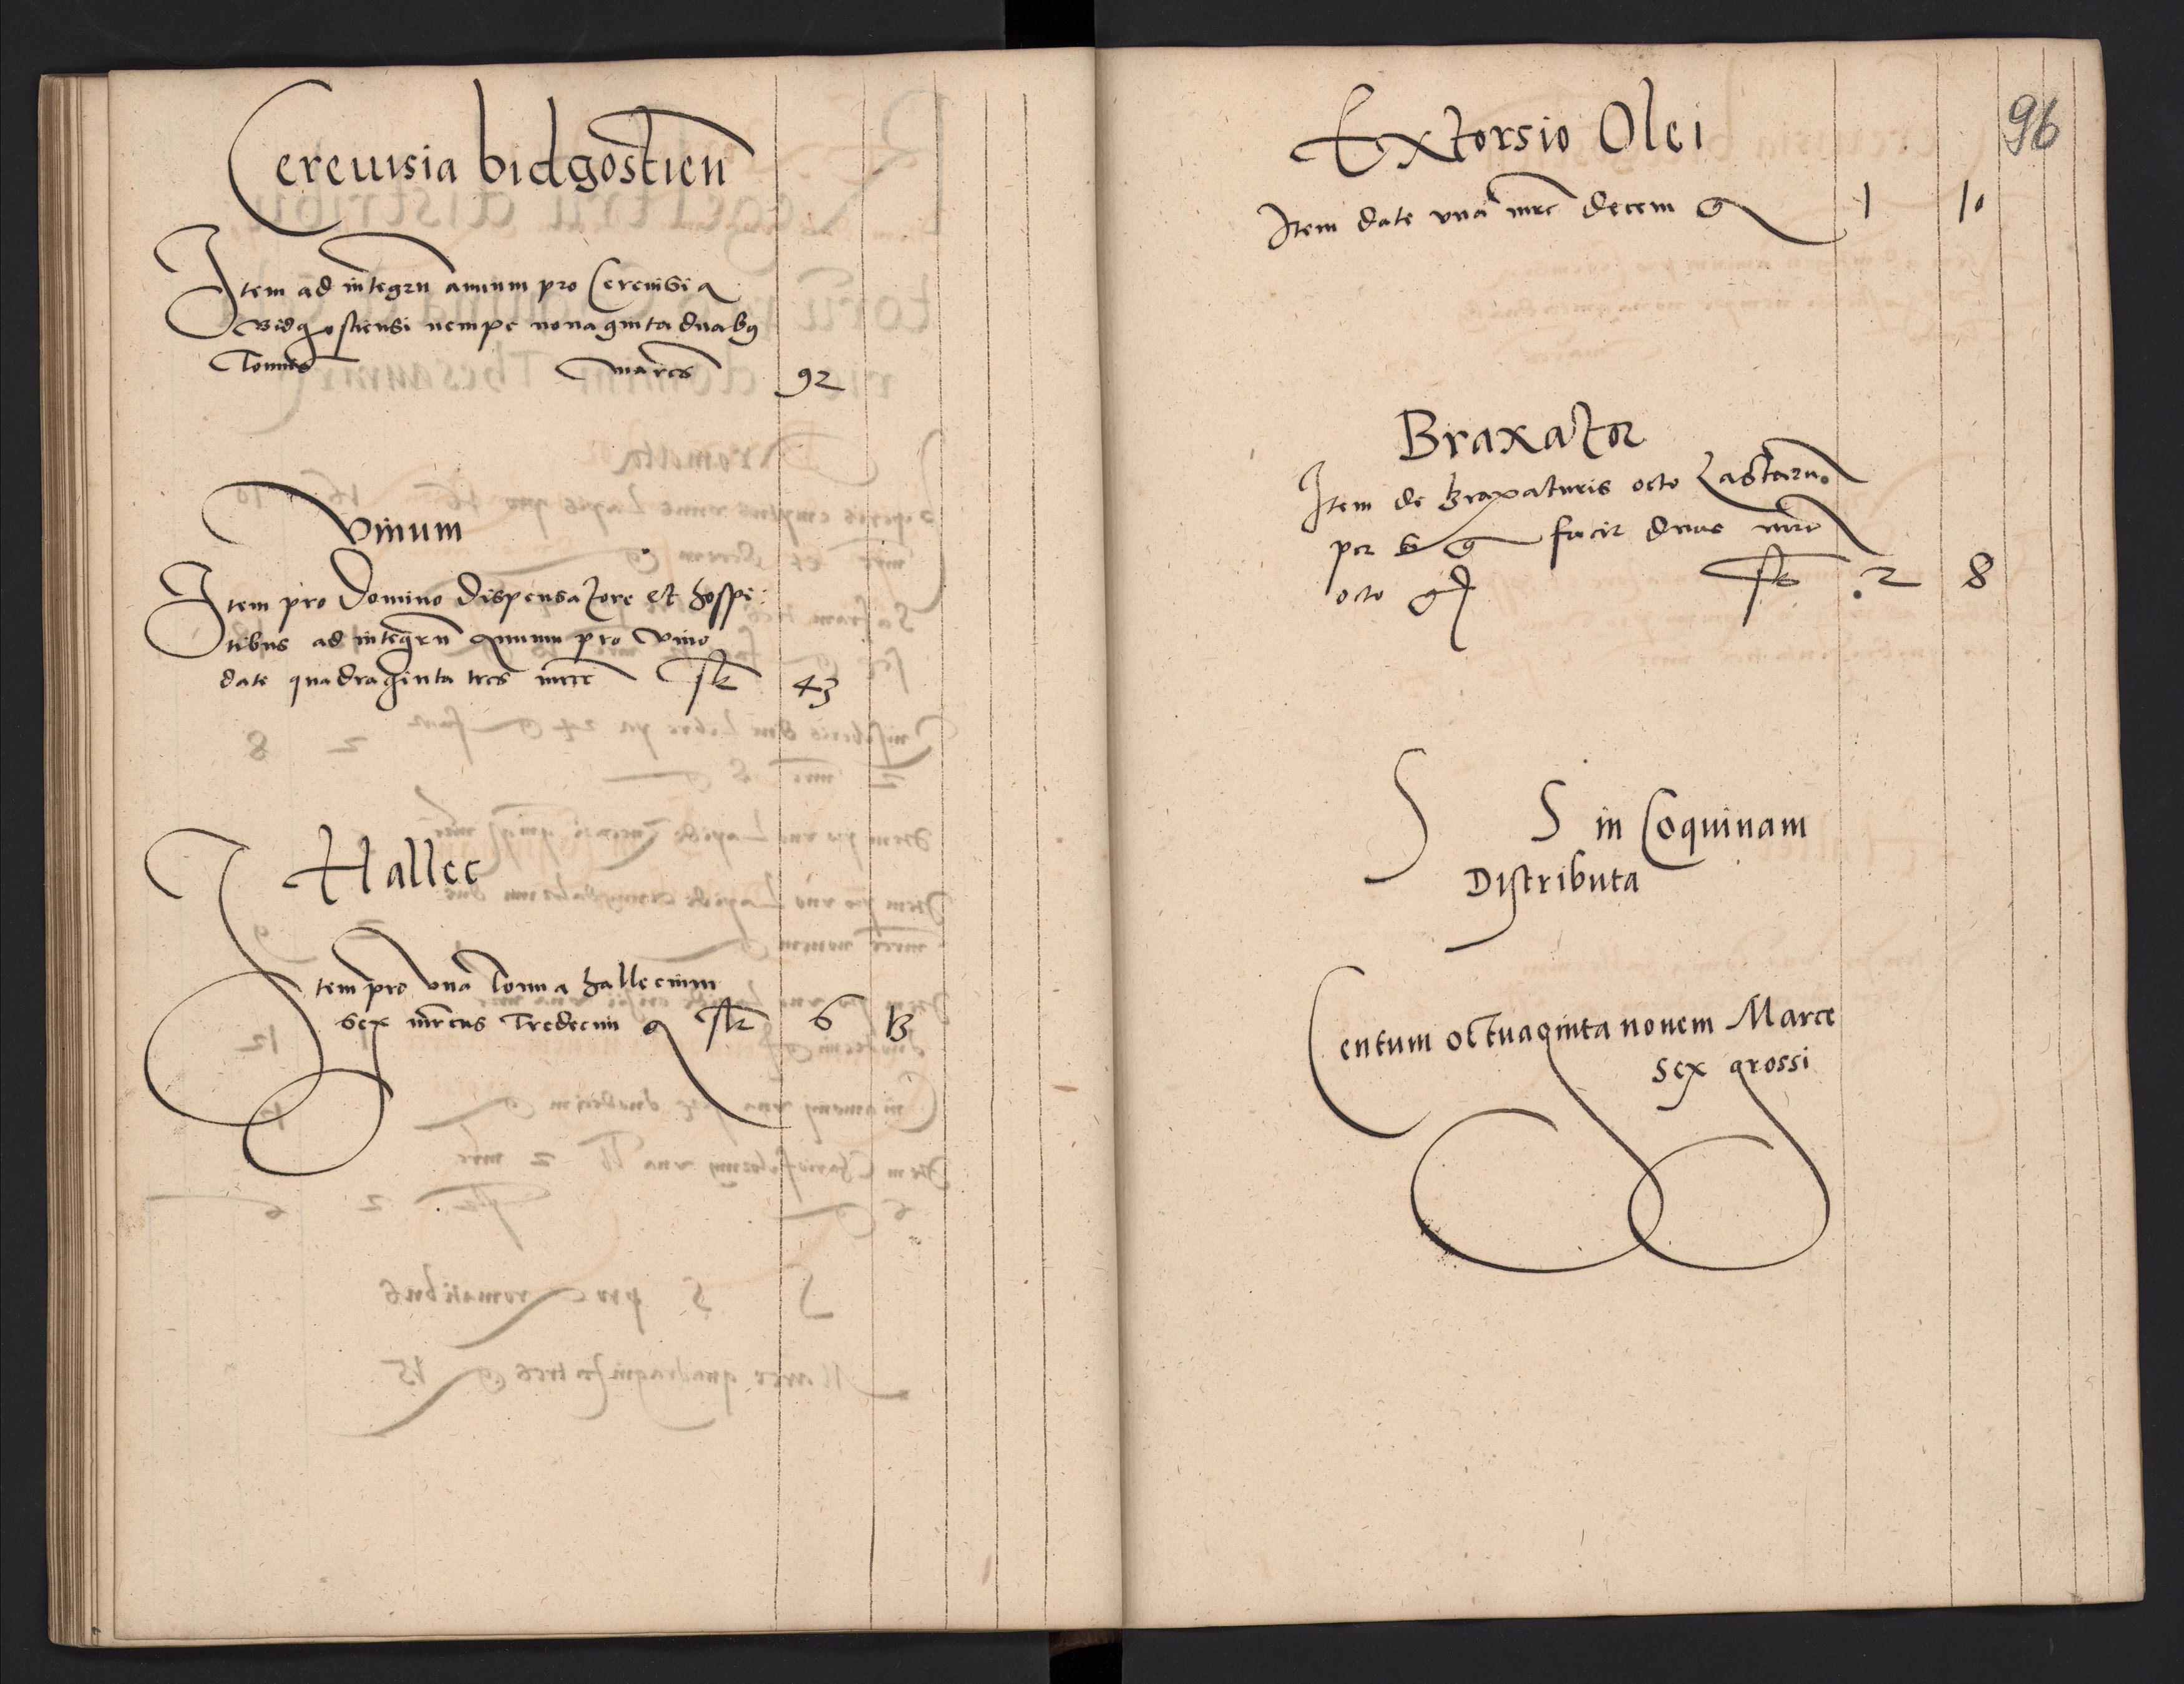 Cereuisia bidgostien
Item ad integrū annum pro Cereuisia
Bidgostiensi nempe nonaginta duabq
Tonnis marcs 92
Vinum
Item pro Domino Dispensatore et hospi:
tibus ad integrū annum pro vino
date quadraginta tres mrce fc 43
Hallec
Item pro vna Tonna hallecium
sex mrcas Tredecim g fc 6 13
96
Extorsio Olei
Item date vnā mrc decem g 1 10
Braxator
Item de braxaturis octo Lastarū
per 6 g facit duas mrc
octo g fc 2 8
S S in Coquinam
Distributa
Centum octuaginta nouem Marce
sex grossi